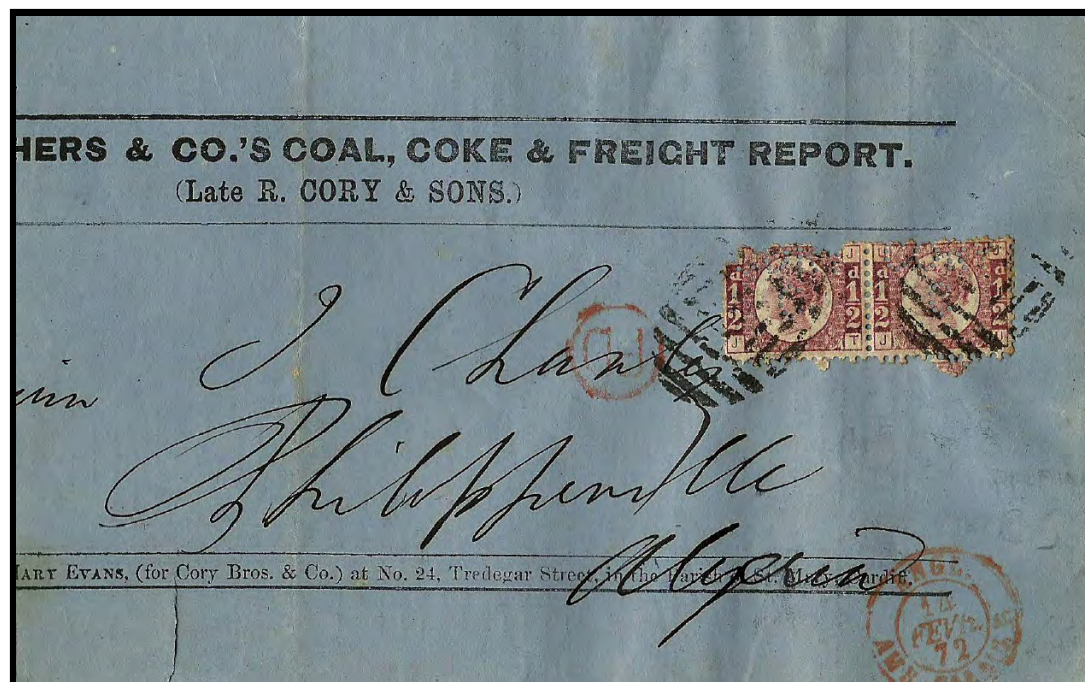 HERS & CO.'S COAL, COKE & FREIGHT REPORT.
(Late R. CORY & SONS.)
J U J
d 1/2 d 1/2 d 1/2 d 1/2
J T J
P.D.
J Charles
Philippeville
Algeria
MARY EVANS, (for Cory Bros. & Co.) at No. 24, Tredegar Street, in the Parish of St. Mary, Cardiff.
ANGL.
14
FEVR
72
AMB. CALAIS